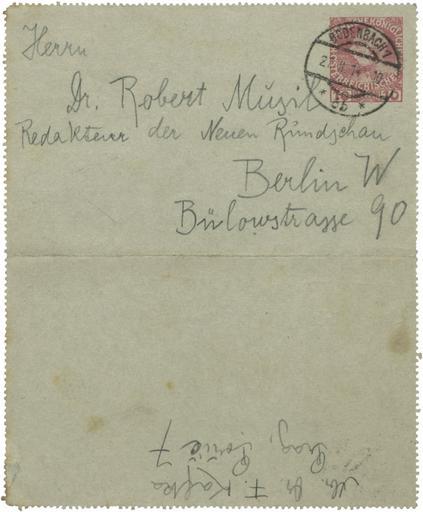 Herrn
Dr. Robert Musil
Redakteur der Neuen Rundschau
Berlin W
Bülowstrasse 90
BODENBACH 1
Dr. F. Kafka
Prag, Pořič 7